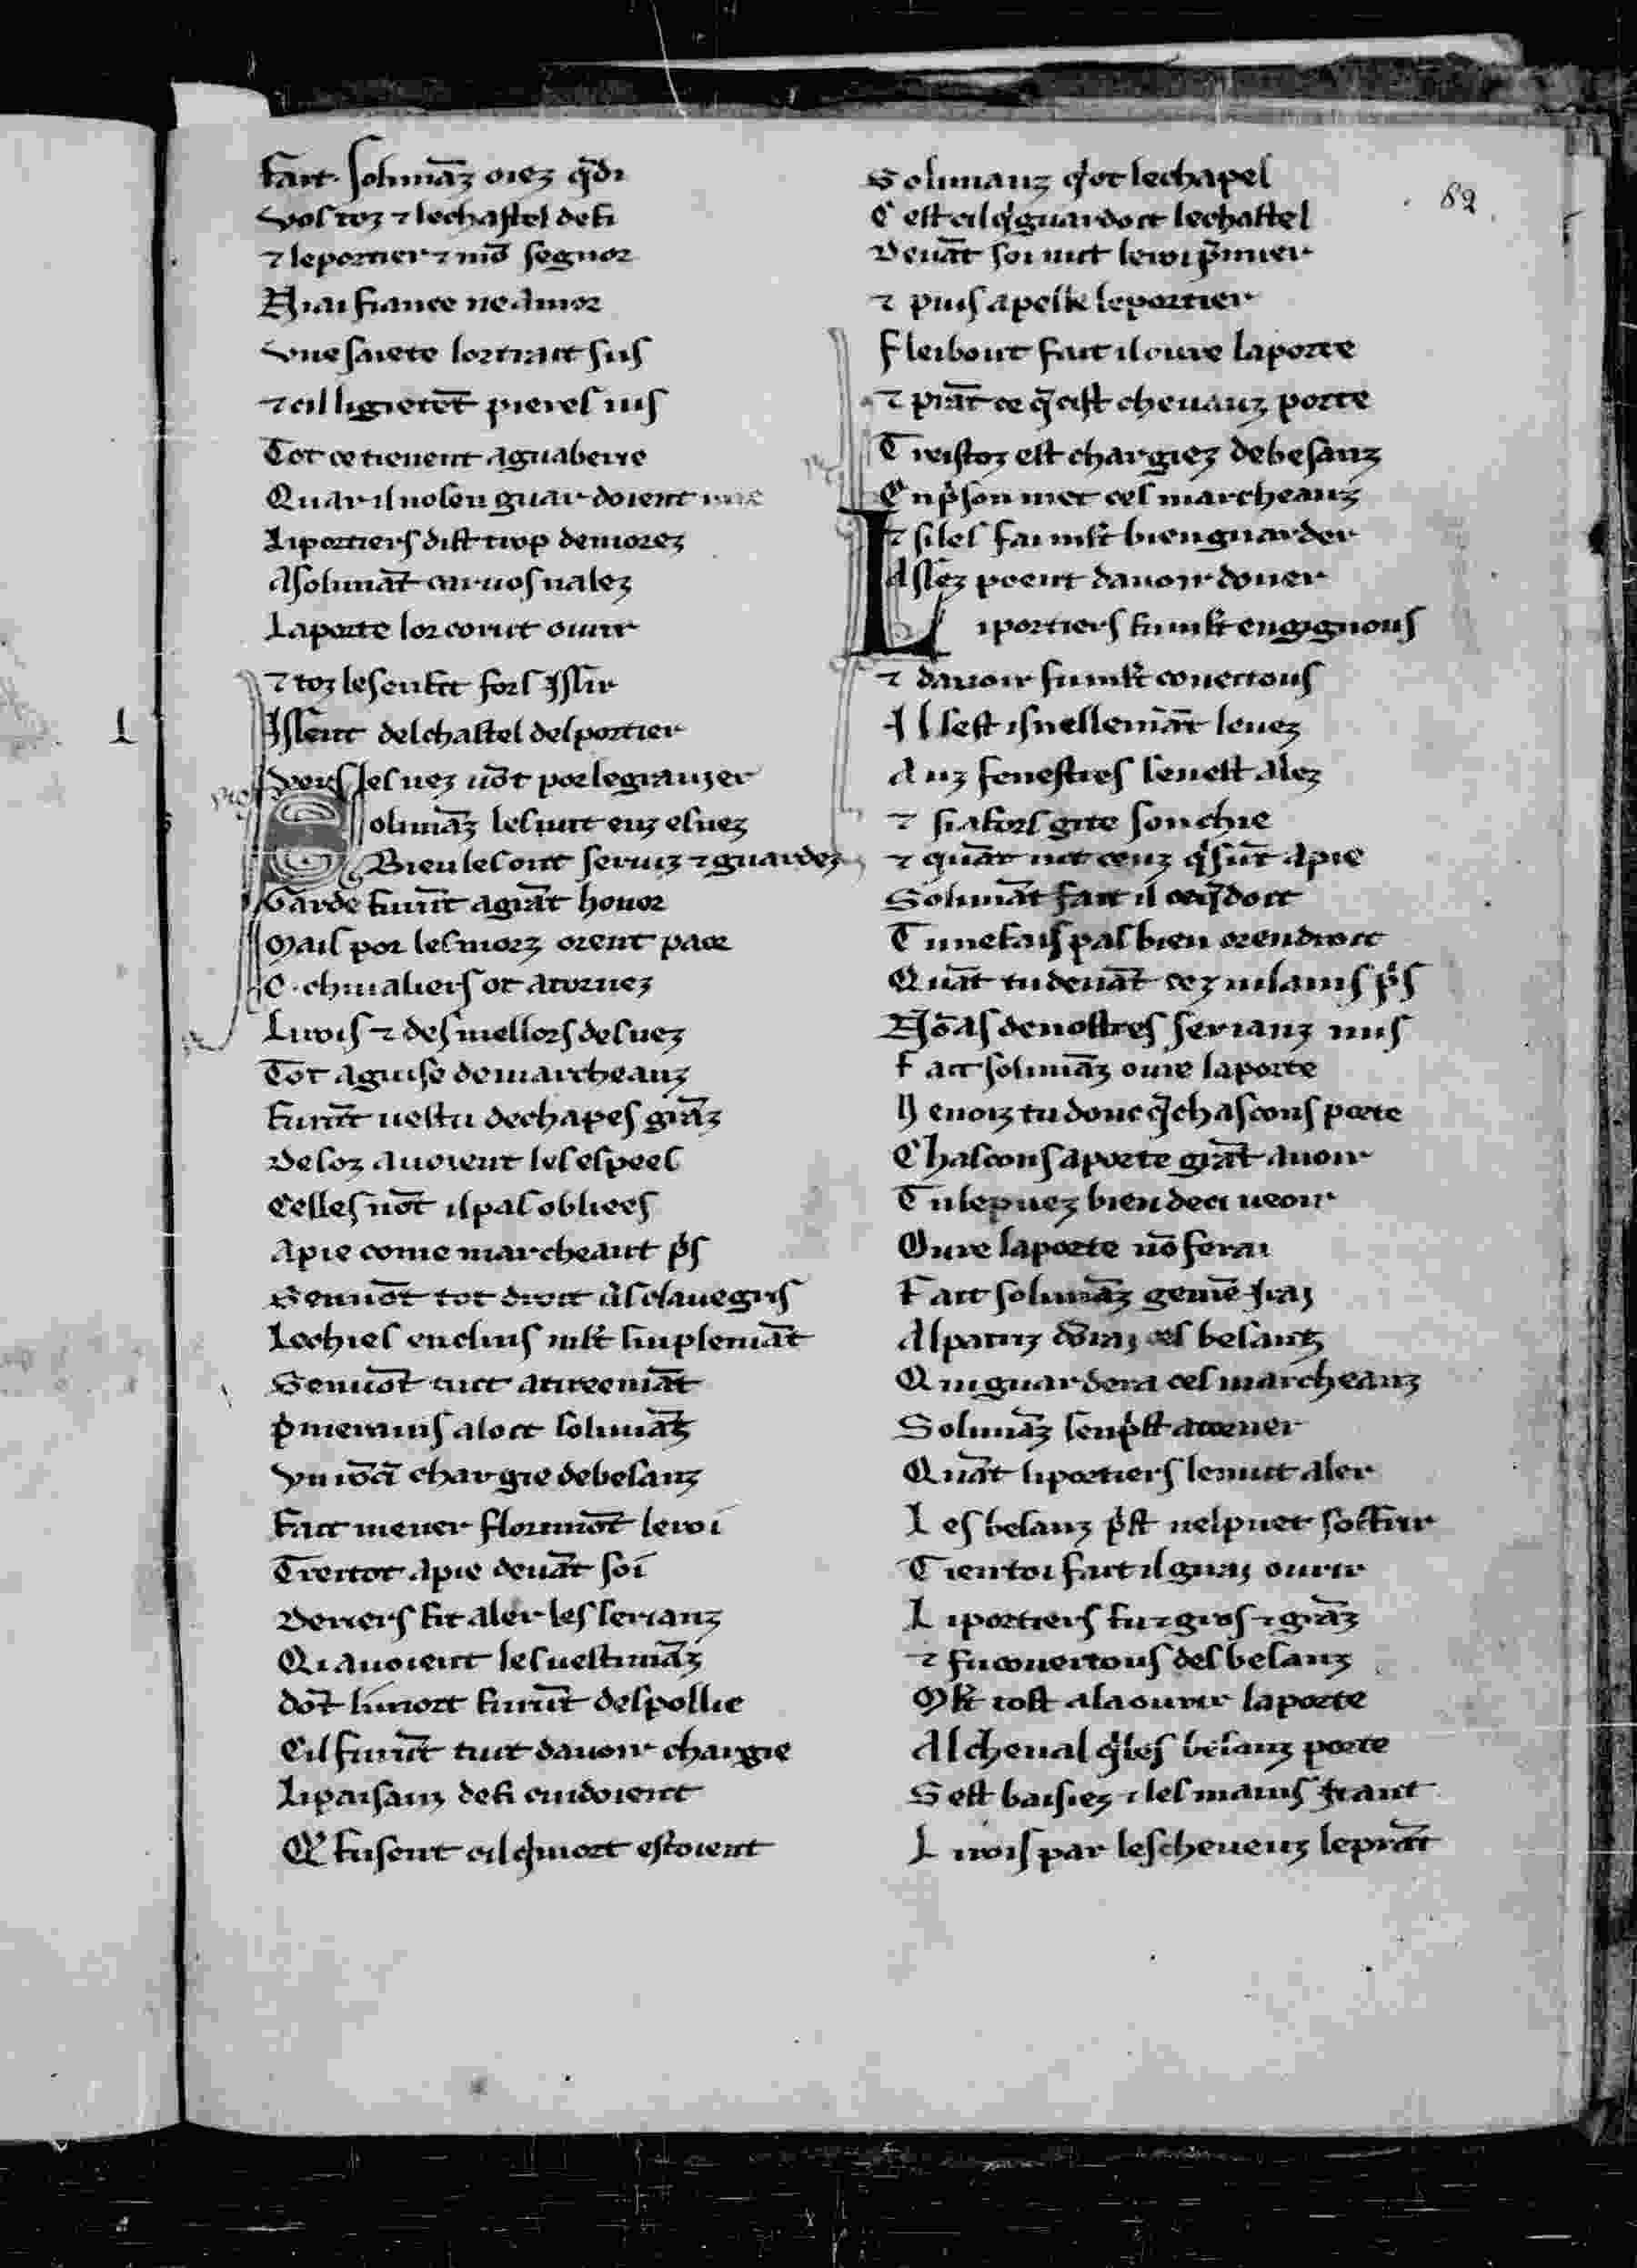 fait solimāz oiez q̄ di
Vos toz ⁊ le chastel defi
⁊ le portier ⁊ mō segnor
Niai fiance ne amor
Vne saiete lor traict sus
⁊ cil ligietēt pieres ius
Tot ce tienent a guaberie
Quar il nosen guardoient mie
Li portiers dist trop demorez
A solimāt car uos nalez
La porte lor corut ourir
⁊ toz les enfait fors issir
Issent del chastel del portier
Vers les nez uōt por le grauier
Solimāz les mit enz es nez
Bien les ont seruiz ⁊ guardez
Garde furūt a grāt honor
Mais por les morz orent paor
C. chiualiers ot atornez
Li rois ⁊ des mellors des nez
Tot a guise de marcheanz
furūt uestu de chapes grāz
Desoz auoient les espees
Celles nōt il pas obliees
A pie come marcheant pͥs
Senuōt tot droit ūs claue gris
Les chies enclins mlt simplemāt
Senuōt tuit atireemāt
Pͥmerains aloit solimāz
Vn rōci chargie de besanz
fait mener florimōt le roi
Trestot a pie deuāt soi
Deriers fit aler les serianz
Qi auoient les uestimāz
dōt li mort furūt despollie
Cil furūt tuit dauoir chargie
Li paisanz defi cuidoient
Qͥ fusent cil qͥ mort estoient
82
Solimanz qͥ ot le chapel
Cest cil qͥ guardoit le chastel
Deuāt soi mit le roi pͥmier
⁊ puis apelle le portier
Fleibout fait il oure la porte
⁊ prāt ce q̄ cist cheuauz porte
Trestoz est chargiez de besanz
En pͥson met ces marcheanz
⁊ si les fai mlt bien guarder
Assez poent dauoir doner
Li portiers fu mlt engignous
⁊ dauoir fu mlt coueitous
Il sest isnellemāt leuez
Auz fenestres senest alez
⁊ sa fors gite son chie
⁊ quāt uit ceuz qͥ sūt a pie
Solimāt fait il ce q̄ doit
Tu ne fais pas bien orendroit
Quāt tu deuāt cez uilains pͥs
Nō as de nostres serianz mis
Fait solimāz oure la porte
Ne uoiz tu donc q̄ chascons porte
Chascons aporte grāt auoir
Tu le puez bien deci ueoir
Oure la porte nō ferai
Fait solimāz
Al pariz dōrai ces besantz
Qui guardera ces marcheanz
Solimāz senpͥst a torner
Quāt li portiers lenuit aler
Les besanz pͥst nel puet soffrir
Tien toi fait il guaj ourir
Li portiers fu ⁊ gros ⁊ grāz
⁊ fu coueitous des besanz
Mlt tost ala ourir la porte
Al cheual qͥ les besanz porte
Sest baisiez ⁊ les mains i tant
Li rois par les cheueuz le prāt